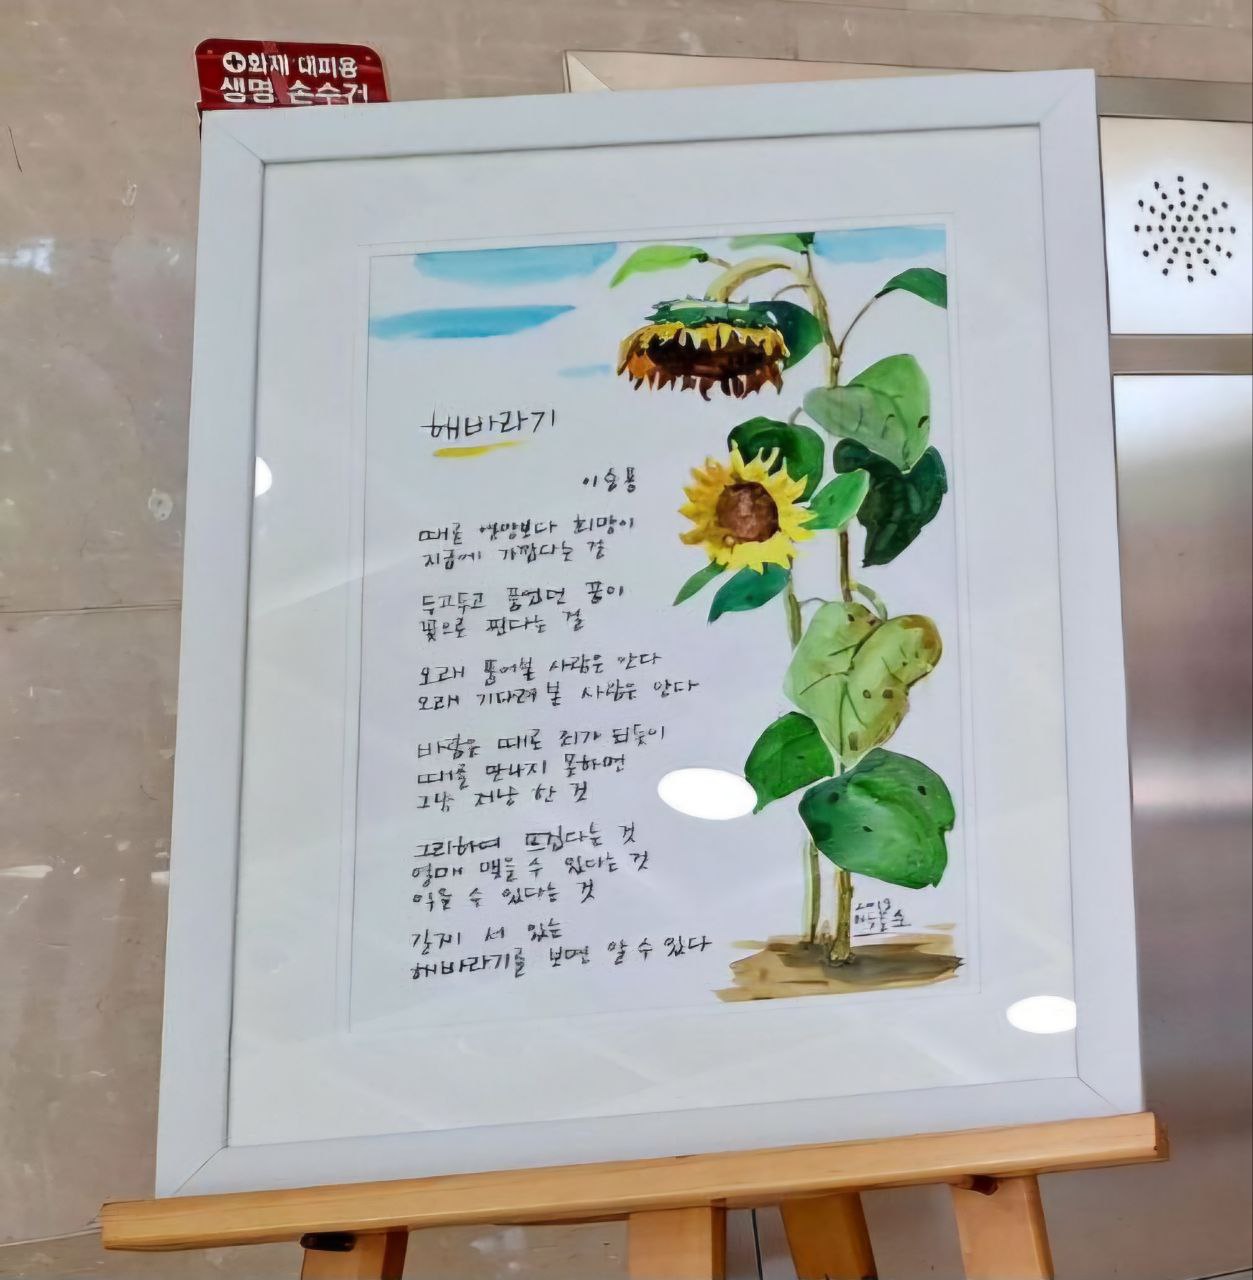 화재 대피용
생명 손수건
해바라기
이승용
때론 절망보다 희망이
지금에 가깝다는 걸
두고두고 품었던 꿈이
꽃으로 핀다는 걸
오래 품어본 사람은 안다
오래 기다려 본 사람은 안다
바람은 때로 죄가 되듯이
때를 만나지 못하면
그냥 저냥 한 것
그리하여 뜨겁다는 것
열매 맺을 수 있다는 것
익을 수 있다는 것
길게 서 있는
해바라기를 보면 알 수 있다
2019